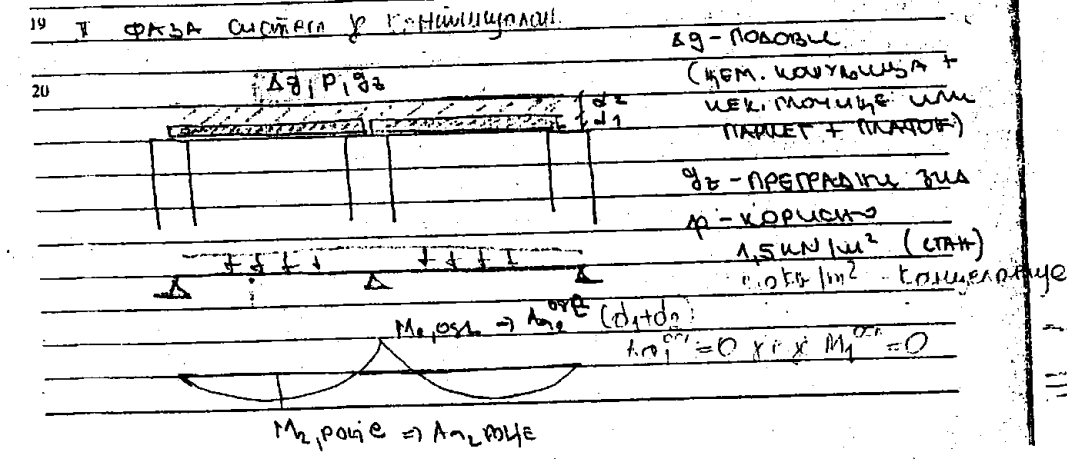 19 II ФАЗА систем у
20
Δg, p, gz
d2
d1
Δg - ПОДОВИ
(ЦЕМ. КОШУЉИЦА +
НЕК. ПЛОЧИЦЕ ИЛИ
ПАРКЕТ + ПЛАФОН)
gz - ПРЕГРАДНИ ЗИД
p - КОРИСНО
1,5 kN/m² (СТАН)
/m² канцеларије
M₂,осл. ⇒ Aa₂ (d1+d2)
=0 M₁ =0
M₂,поље ⇒ Aa₂ ПОЉЕ